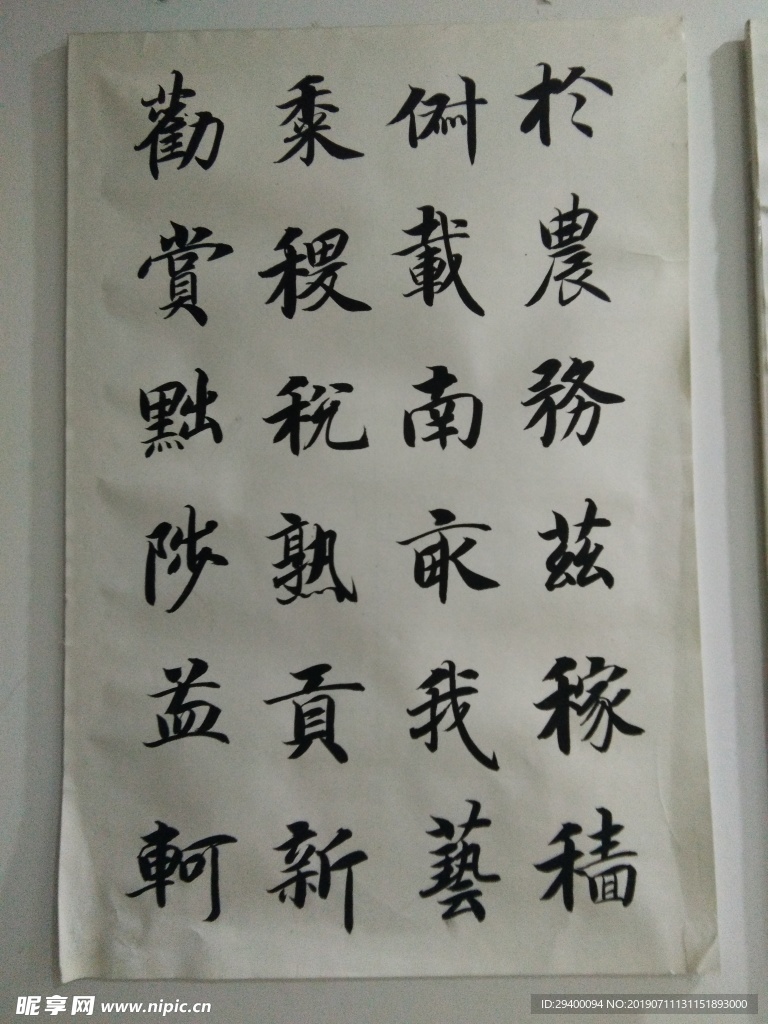 於農務茲稼穡
俶載南畝我藝
黍稷稅熟貢新
勸賞黜陟益軻
昵享网 www.nipic.cn
ID:29400094 NO:20190711131151893000